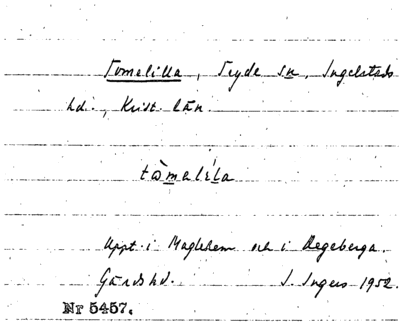 Tomelilla, Tryde sn, Ingelstads
hd., Krist. län.
tòmalíla
Uppt. i Maglehem och i Degeberga.
Gärds hd. I. Ingers 1952.
Nr 5457.